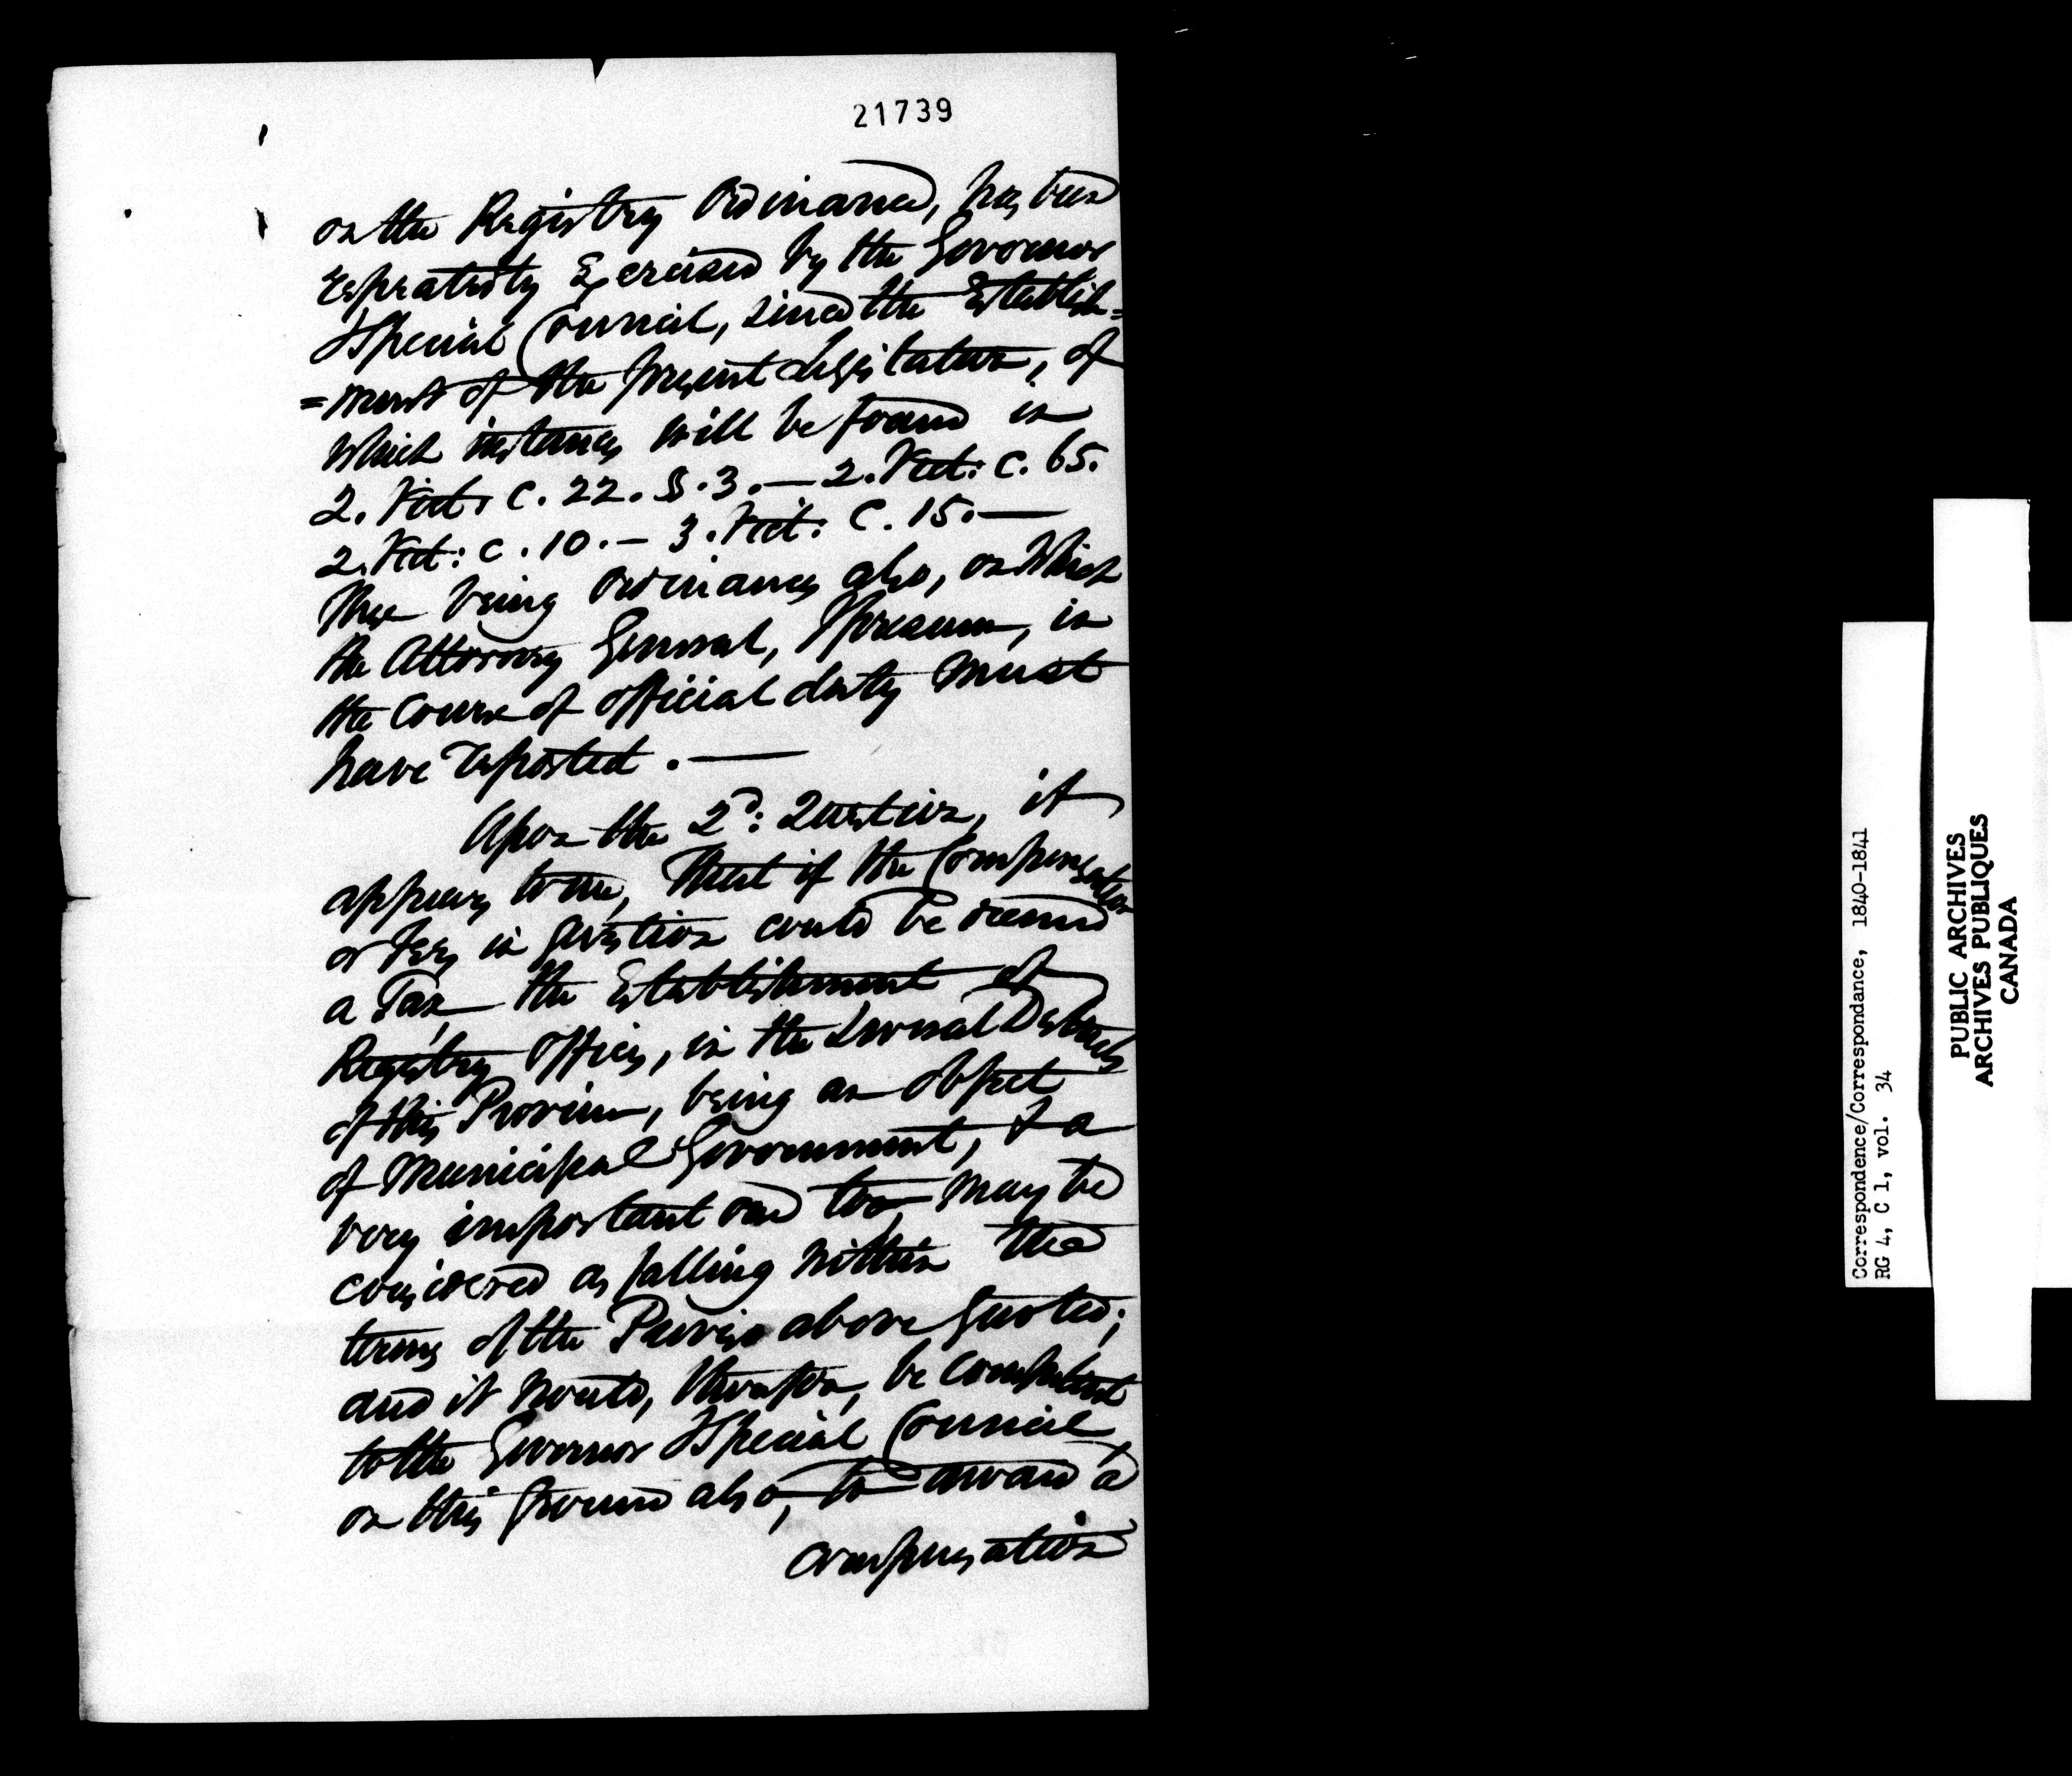 21739
on the Registry Ordinance, has been
repeatedly Exercised by the Governor
& Special Council, since the Establish=
=ment of the present Legislature, of
which instances will be found in
2. Vict: C. 22. S. 3. — 2. Vict: C. 65.
2. Vict: C. 10. — 3. Vict: C. 15. —
These being Ordinances also, on which
the Attorney General, I presume, in
the Course of official duty must
have reported. —
Upon the 2d: Question, it
appears to me, that if the Compensation
or Fees in question could be deemed
a Tax, the Establishment of
Registry Offices, in the several Districts
of this Province, being an object
of Municipal Government, & a
very important one too, may be
considered as falling within the
terms of the Proviso above quoted;
and it would, therefore, be competent
to the Governor & Special Council,
on this ground also, to award a
compensation
Correspondence/Correspondance, 1840-1841
RG 4, C 1, vol. 34
PUBLIC ARCHIVES
ARCHIVES PUBLIQUES
CANADA